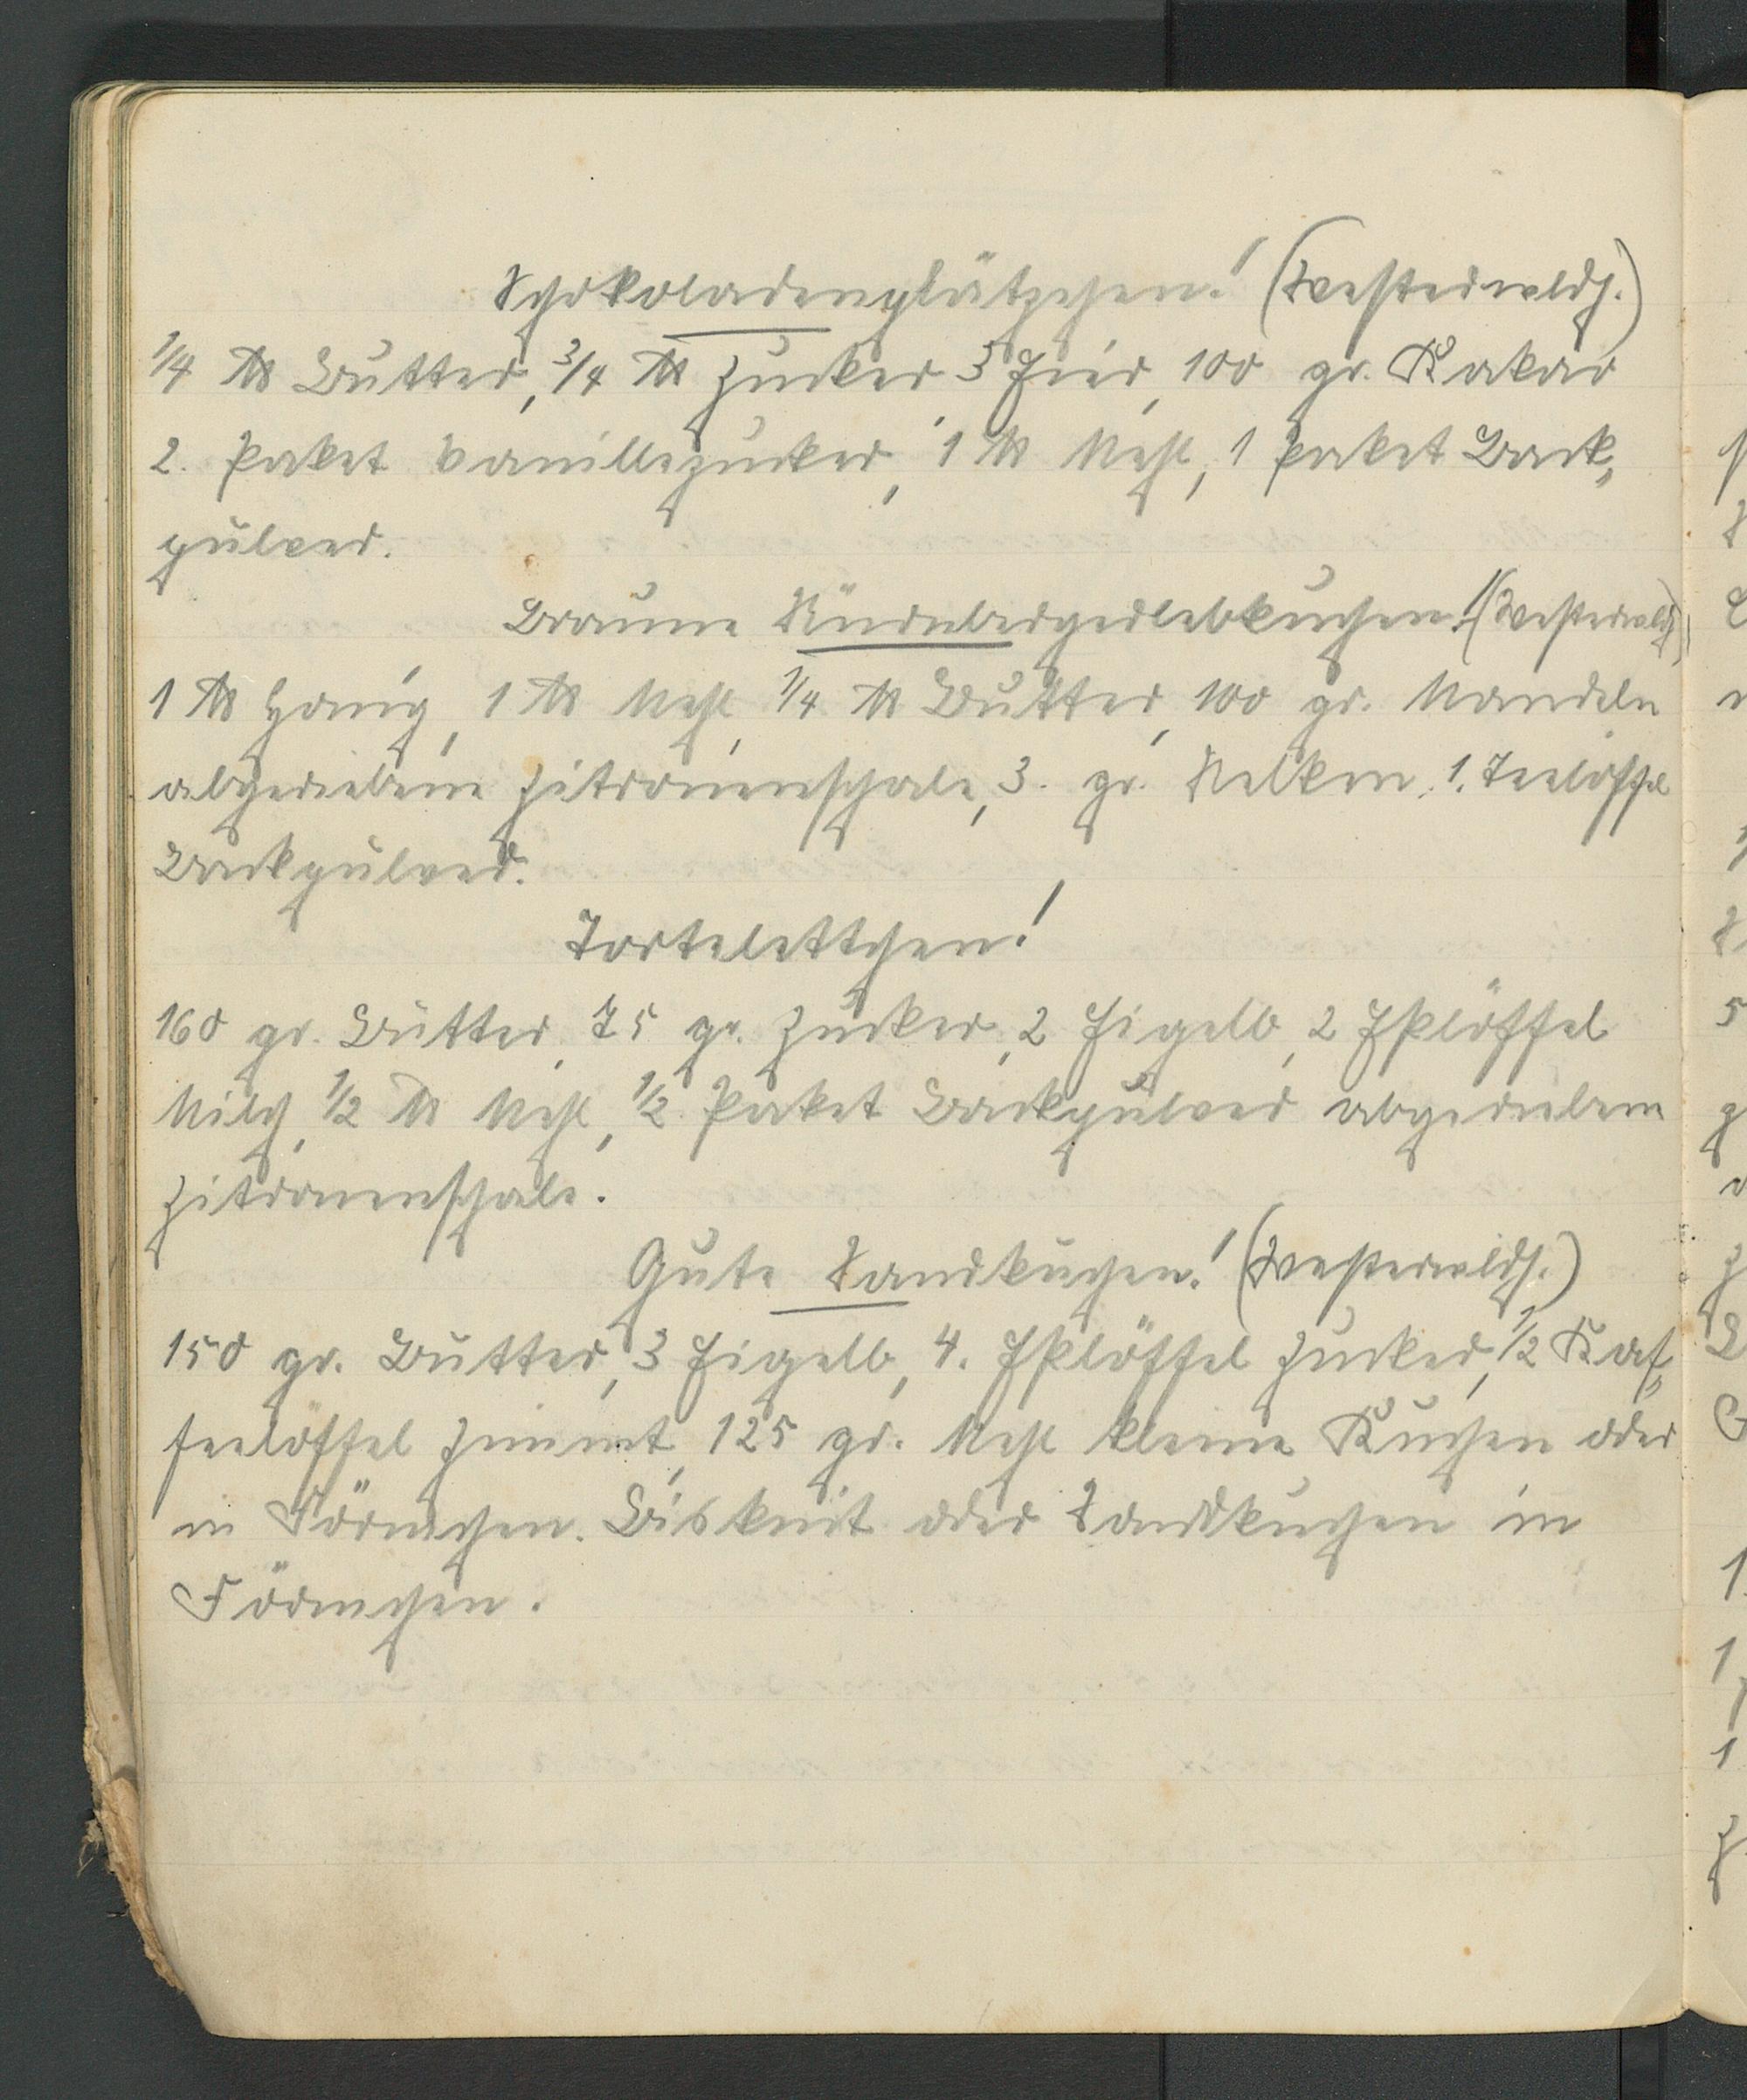 Schokoladenplätzchen! (Westerwldh.)
1/4 ℔ Butter, 3/4 ℔ Zucker 3 Eier, 100 gr. Kakao
2. Paket Vanillezucker, 1 ℔ Mehl, 1 Paket Back„
pulver.
Braune Nürnbergerlebkuchen! (Westerwldh.)
1 ℔ Honig, 1 ℔ Mehl, 1/4 ℔ Butter, 100 gr. Mandeln
abgeriebene Zitronenschale, 3. gr. Nelken, 1. Teelöffel
Backpulver.
Tortelettchen!
160 gr. Butter, 75 gr. Zucker, 2 Eigelb, 2 Eßlöffel
Milch, 1/2 ℔ Mehl, 1/2 Paket Backpulver abgeriebene
Zitronenschale.
Gute Sandkuchen! (Westerwldh.)
150 gr. Butter, 3 Eigelb, 4. Eßlöffel Zucker, 1/2 Kaf„
feelöffel Zimmt, 125 gr. Mehl kleine Kuchen oder
in Förmchen. Biskuit oder Sandkuchen in
Förmchen.